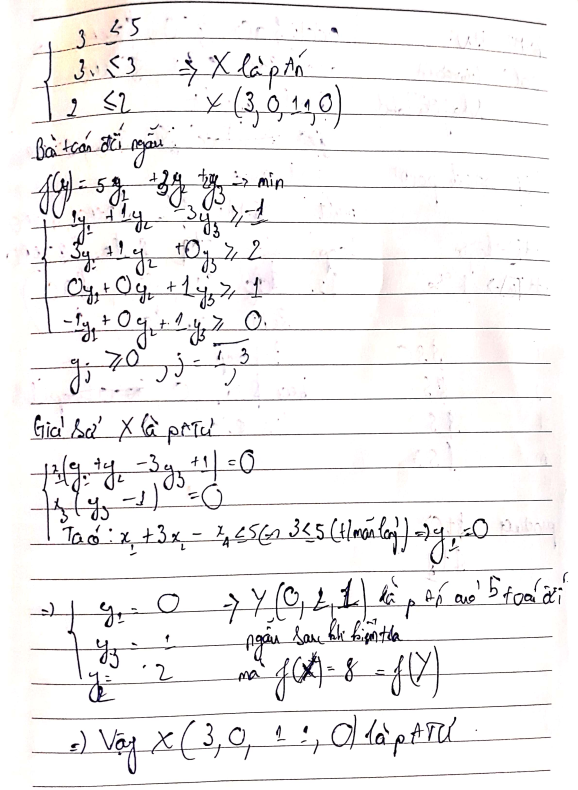 3 ≤ 5
3 ≤ 3 ⇒ X là pÁn
2 ≤ 2 X (3, 0, 11, 0)
Bài toán đối ngẫu
f(y) = 5y₁ + 3y₂ + 2y₃ → min
1y₁ + 1y₂ - 3y₃ ≥ -1
3y₁ + 1y₂ + 0y₃ ≥ 2
0y₁ + 0y₂ + 1y₃ ≥ 1
-1y₁ + 0y₂ + 1y₃ ≥ 0.
yⱼ ≥ 0, j = 1,3
Giả sử X là pATư
x₁(y₁ + y₂ - 3y₃ + 1) = 0
x₃(y₃ - 1) = 0
Ta có: x₁ + 3x₂ - x₄ ≤ 5 ⇔ 3 ≤ 5 (t/mãn) ⇒ y₁ = 0
⇒ y₁ = 0 ⇒ Y(0, 2, 1) là pÁn của b toán đối
y₃ = 1 ngẫu sau khi kiểm tra
y₂ = 2 mà f(X) = 8 = f(Y)
⇒ Vậy X(3, 0, 11, 0) là pATư